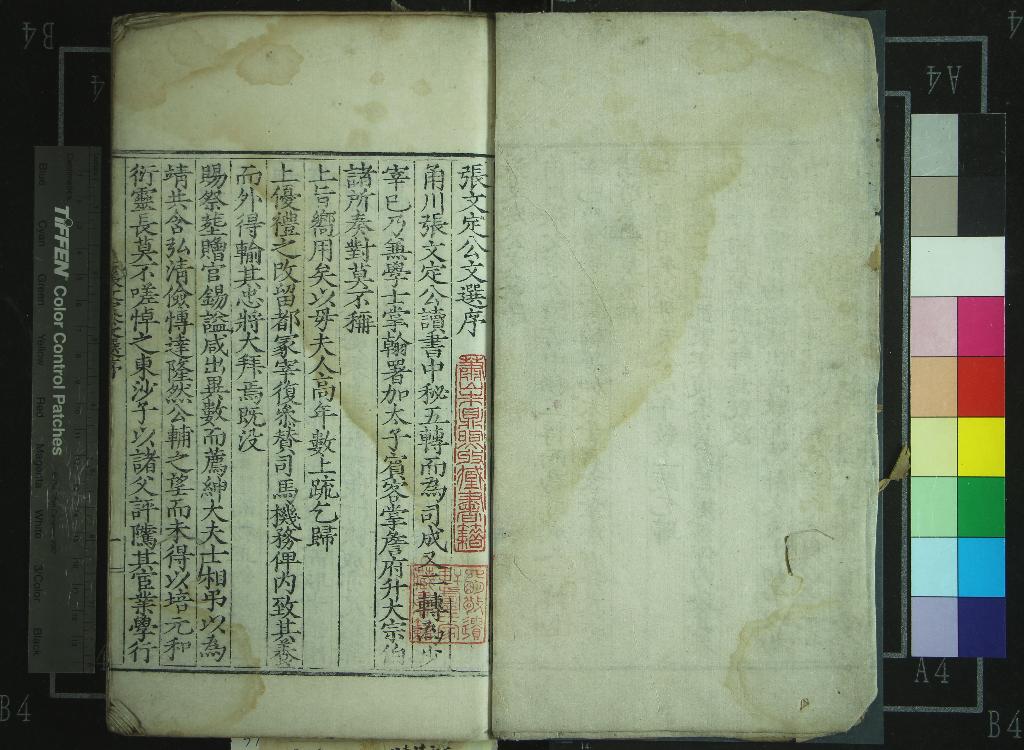 張文定公文選序
甬川張文定公讀書中秘五轉而為司成又一轉為少
宰已乃兼學士掌翰署加太子賓客掌詹府升大宗伯
諸所奏對莫不稱
上旨嚮用矣以母夫人高年數上疏乞歸
上優禮之改留都冢宰復參贊司馬機務俾内致其養
而外得輸其忠將大拜焉既没
賜祭塟贈官錫謚咸出異數而薦紳大夫士相弔以為
靖共含弘清儉慱達隆然公輔之望而未得以培元和
衍靈長莫不嗟悼之東沙子以諸父評隲其官業學行
一
蕭山朱鼎煦收藏書籍
TIFFEN Color Control Patches
Blue
Cyan
Green
Yellow
Red
Magenta
White
3/Color
Black
B4
4
A4
4
A4
B4
B4